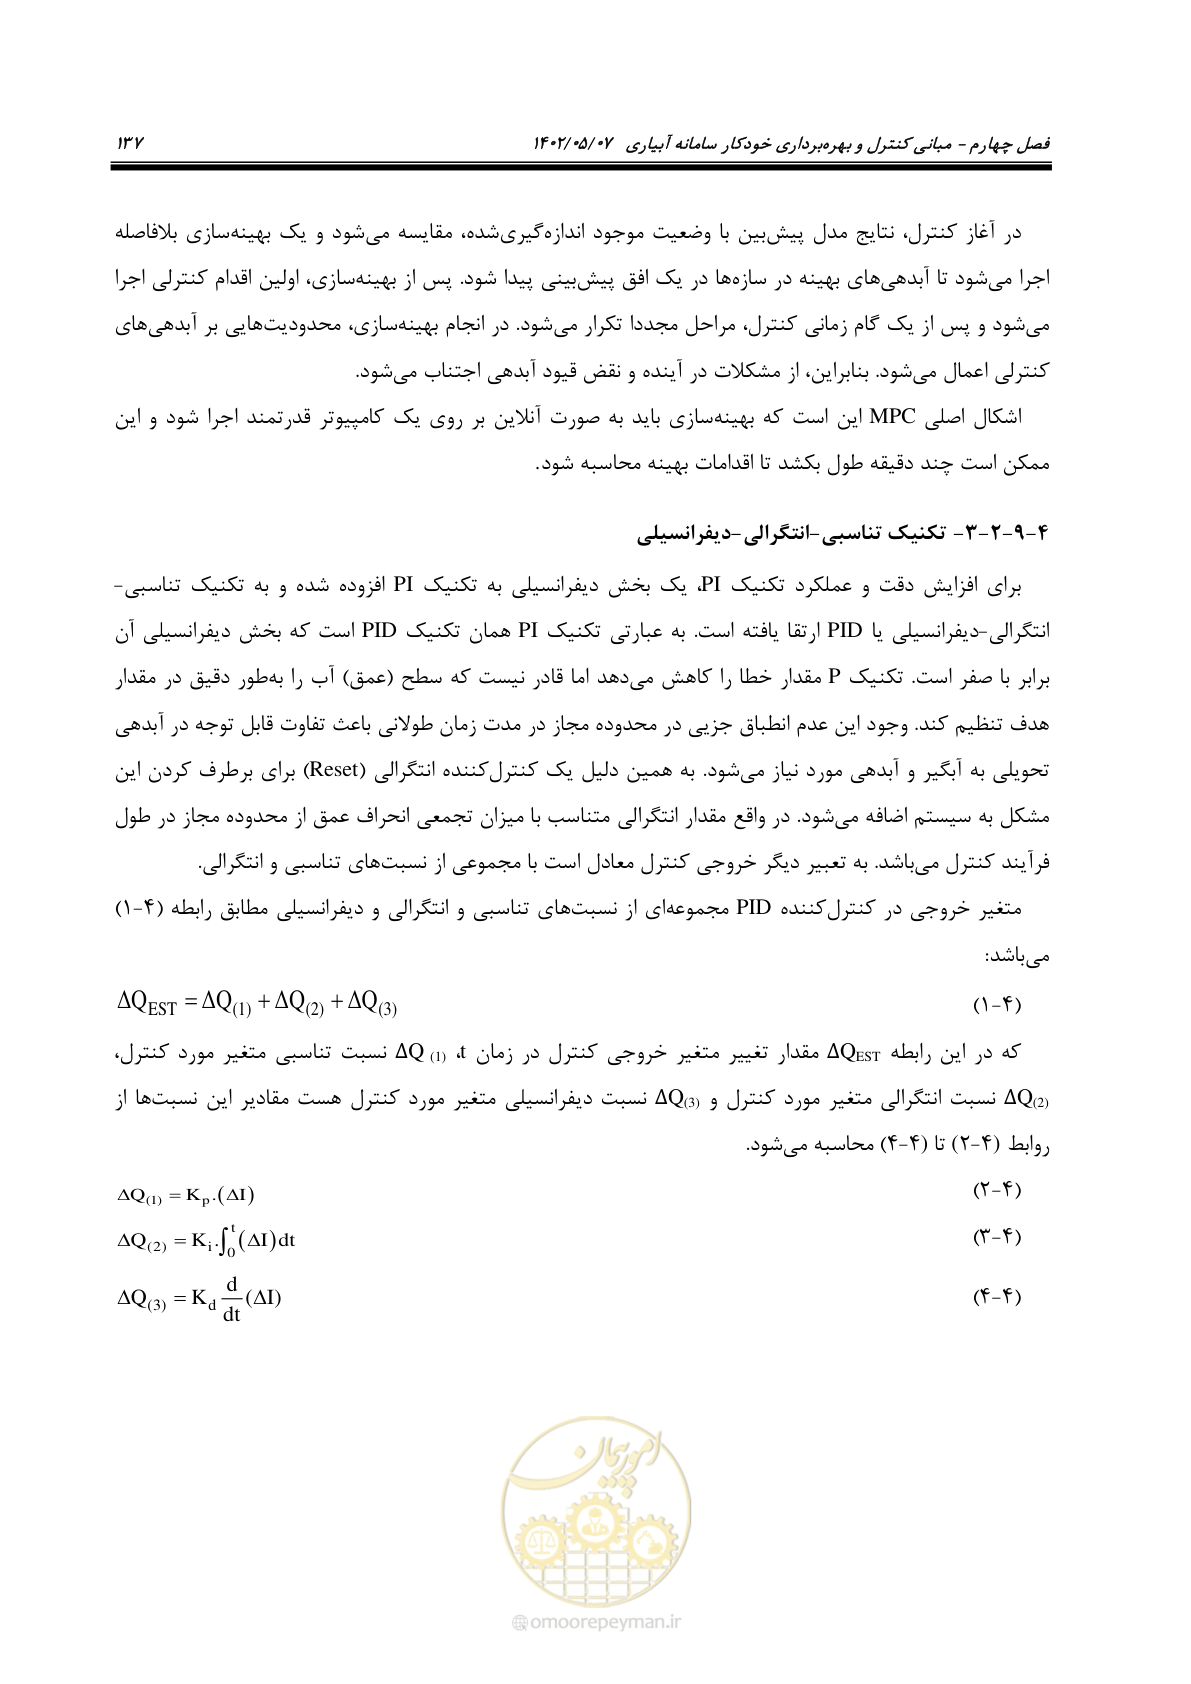 فصل چهارم - مبانی کنترل و بهره‌برداری خودکار سامانه آبیاری ۱۴۰۲/۰۵/۰۷ ۱۳۷
در آغاز کنترل، نتایج مدل پیش‌بین با وضعیت موجود اندازه‌گیری‌شده، مقایسه می‌شود و یک بهینه‌سازی بلافاصله
اجرا می‌شود تا آبدهی‌های بهینه در سازه‌ها در یک افق پیش‌بینی پیدا شود. پس از بهینه‌سازی، اولین اقدام کنترلی اجرا
می‌شود و پس از یک گام زمانی کنترل، مراحل مجددا تکرار می‌شود. در انجام بهینه‌سازی، محدودیت‌هایی بر آبدهی‌های
کنترلی اعمال می‌شود. بنابراین، از مشکلات در آینده و نقض قیود آبدهی اجتناب می‌شود.
اشکال اصلی MPC این است که بهینه‌سازی باید به صورت آنلاین بر روی یک کامپیوتر قدرتمند اجرا شود و این
ممکن است چند دقیقه طول بکشد تا اقدامات بهینه محاسبه شود.
۴-۹-۲-۳- تکنیک تناسبی-انتگرالی-دیفرانسیلی
برای افزایش دقت و عملکرد تکنیک PI، یک بخش دیفرانسیلی به تکنیک PI افزوده شده و به تکنیک تناسبی-
انتگرالی-دیفرانسیلی یا PID ارتقا یافته است. به عبارتی تکنیک PI همان تکنیک PID است که بخش دیفرانسیلی آن
برابر با صفر است. تکنیک P مقدار خطا را کاهش می‌دهد اما قادر نیست که سطح (عمق) آب را به‌طور دقیق در مقدار
هدف تنظیم کند. وجود این عدم انطباق جزیی در محدوده مجاز در مدت زمان طولانی باعث تفاوت قابل توجه در آبدهی
تحویلی به آبگیر و آبدهی مورد نیاز می‌شود. به همین دلیل یک کنترل‌کننده انتگرالی (Reset) برای برطرف کردن این
مشکل به سیستم اضافه می‌شود. در واقع مقدار انتگرالی متناسب با میزان تجمعی انحراف عمق از محدوده مجاز در طول
فرآیند کنترل می‌باشد. به تعبیر دیگر خروجی کنترل معادل است با مجموعی از نسبت‌های تناسبی و انتگرالی.
متغیر خروجی در کنترل‌کننده PID مجموعه‌ای از نسبت‌های تناسبی و انتگرالی و دیفرانسیلی مطابق رابطه (۴-۱)
می‌باشد:
(۴-۱) ΔQEST = ΔQ(1) + ΔQ(2) + ΔQ(3)
که در این رابطه ΔQEST مقدار تغییر متغیر خروجی کنترل در زمان t، ΔQ (1) نسبت تناسبی متغیر مورد کنترل،
ΔQ(2) نسبت انتگرالی متغیر مورد کنترل و ΔQ(3) نسبت دیفرانسیلی متغیر مورد کنترل هست مقادیر این نسبت‌ها از
روابط (۴-۲) تا (۴-۴) محاسبه می‌شود.
(۴-۲) ΔQ(1) = Kp.(ΔI)
(۴-۳) ΔQ(2) = Ki.∫0^t (ΔI)dt
(۴-۴) ΔQ(3) = Kd d/dt (ΔI)
امور پیمان
omoorepeyman.ir